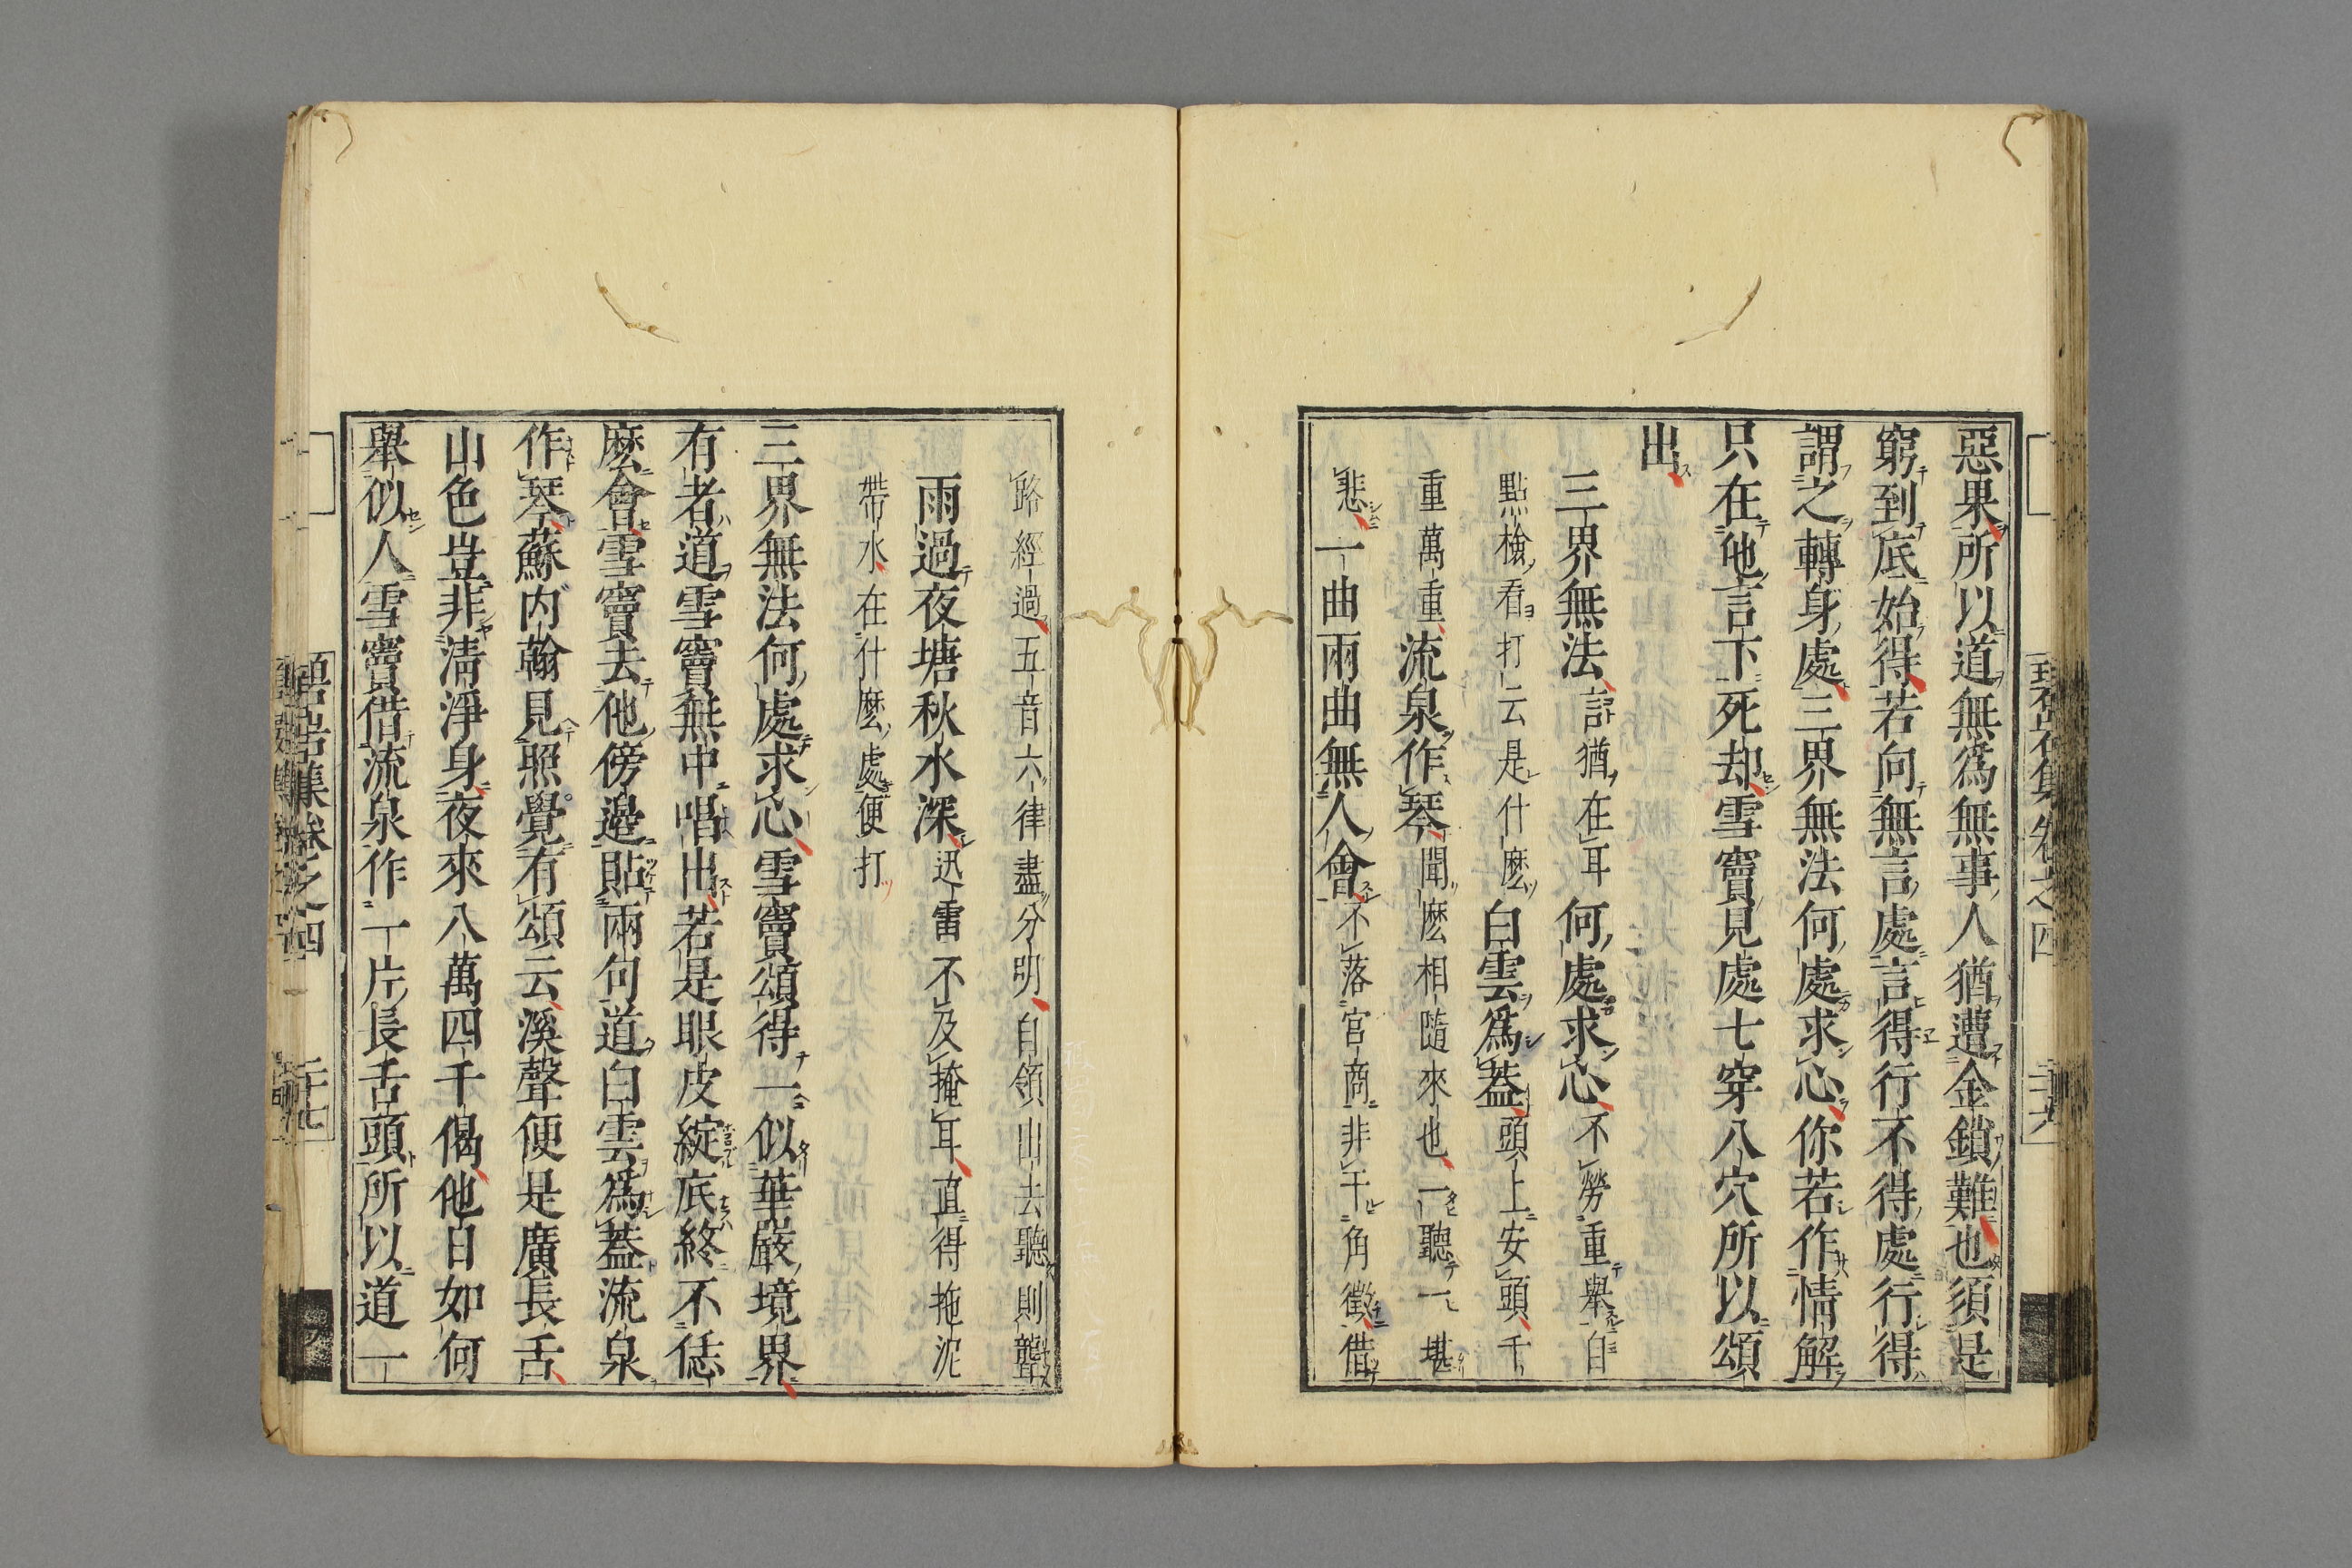 惡果所以道無爲無事人猶遭金鎖難也須是
窮到底始得若向無言處言得行不得處行得
謂之轉身處三界無法何處求心你若作情解
只在他言下死却雪竇見處七穿八穴所以頌
出
三界無法言猶在耳何處求心不勞重舉自
點檢看打云是什麽白雲爲蓋頭上安頭千
重萬重流泉作琴聞麽相隨來也一聽一堪
悲一曲兩曲無人會不落宮商非干角徵借
路經過五音六律盡分明自領出去聽則聾
雨過夜塘秋水深迅雷不及掩耳直得拖泥
帶水在什麽處便打
三界無法何處求心雪竇頌得一似華嚴境界
有者道雪竇無中唱出若是眼皮綻底終不恁
麽會雪竇去他傍邊貼兩句道白雲爲蓋流泉
作琴蘇内翰見照覺有頌云溪聲便是廣長舌
山色豈非淸淨身夜來八萬四千偈他日如何
舉似人雪竇借流泉作一片長舌頭所以道一
碧岩集卷之四
二十六
碧岩集卷之四
二十七